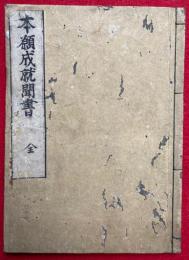 本願成就聞書 全